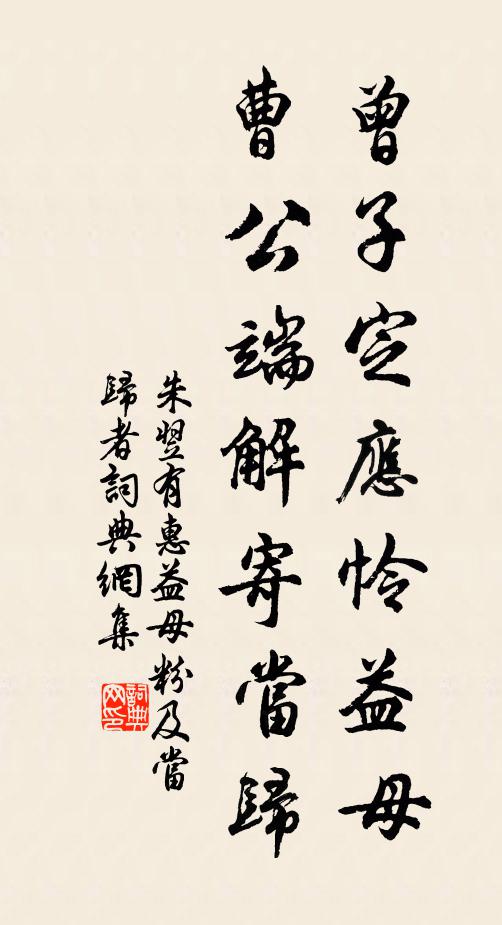 曾子定應憐益母
曹公端解寄當歸
朱翌有惠益母粉及當
歸者詞典網集
詞典
网印